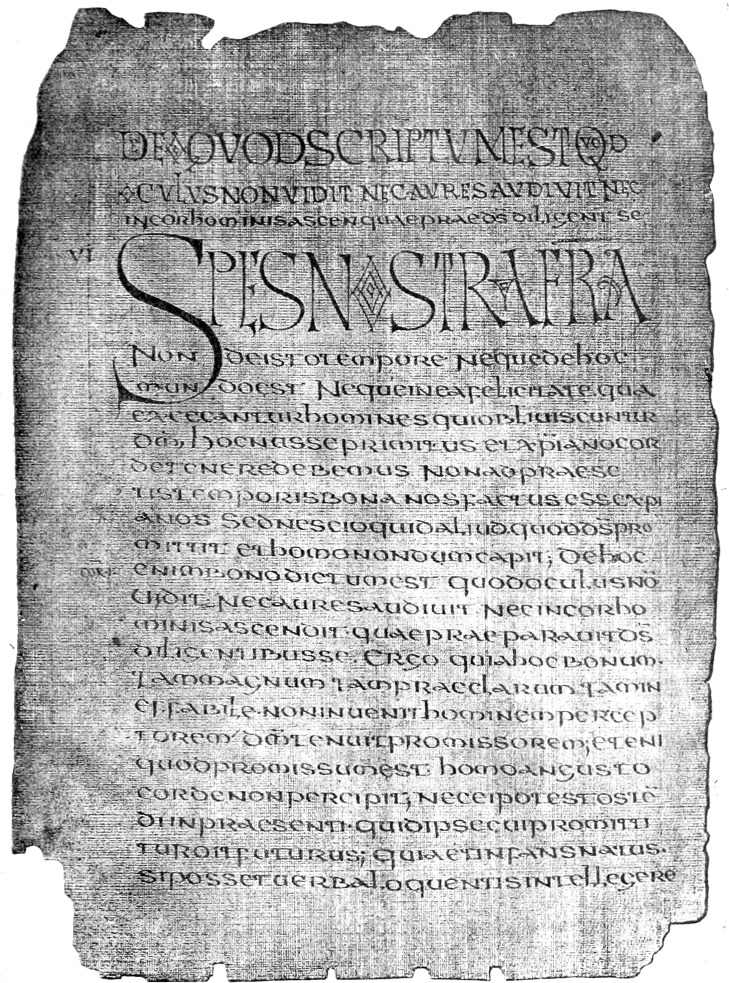 DEEOQVODSCRIPTVMESTQVOD
OCVLVSNONVIDIT NECAVRESAVDIVIT NEC
INCORhOMINISASCENQVAEPRAEDS DILIGENT SE
VI
SPESNOSTRAFRA
NON DEISTOTEMPORE NEQUEDEHOC
MUNDOEST NEQUEINEAFELICITATE QUA
EXCECANTURHOMINESQUIOBLIUISCUNTUR
DM, HOCNUSSEPRIMITUS ETXPIANOCOR
DETENEREDEBEMUS NONADPRAESE
TISTEMPORISBONA NOSFACTUSESSEXPI
ANOS SEDNESCIOQUIDALIUD.QUODDSPRO
MITTIT ETHOMONONDUMCAPIT; DEHOC
ENIMBONODICTUMEST QUODOCULUSNO
UIDIT NECAURESAUDIUIT NECINCORHO
MINISASCENDIT.QUAEPRAEPARAUITDS
DILIGENTIBUSSE. ERGO QUIAHOCBONUM.
TAMMAGNUM TAMPRAECLARUM TAMIN
EFFABILE.NONINUENITHOMINEMPERCEP
TOREM DMTENUITPROMISSOREM; ETENI
QUODPROMISSUMEST. HOMOANGUSTO
CORDENONPERCIPIT; NECEIPOTESTOSTE
DIINPRAESENTI.QUIDIPSECUIPROMITTI
TURSITFUTURUS; QUIAETINFANSNATUS.
SIPOSSETUERBALOQUENTISINTELLEGERE